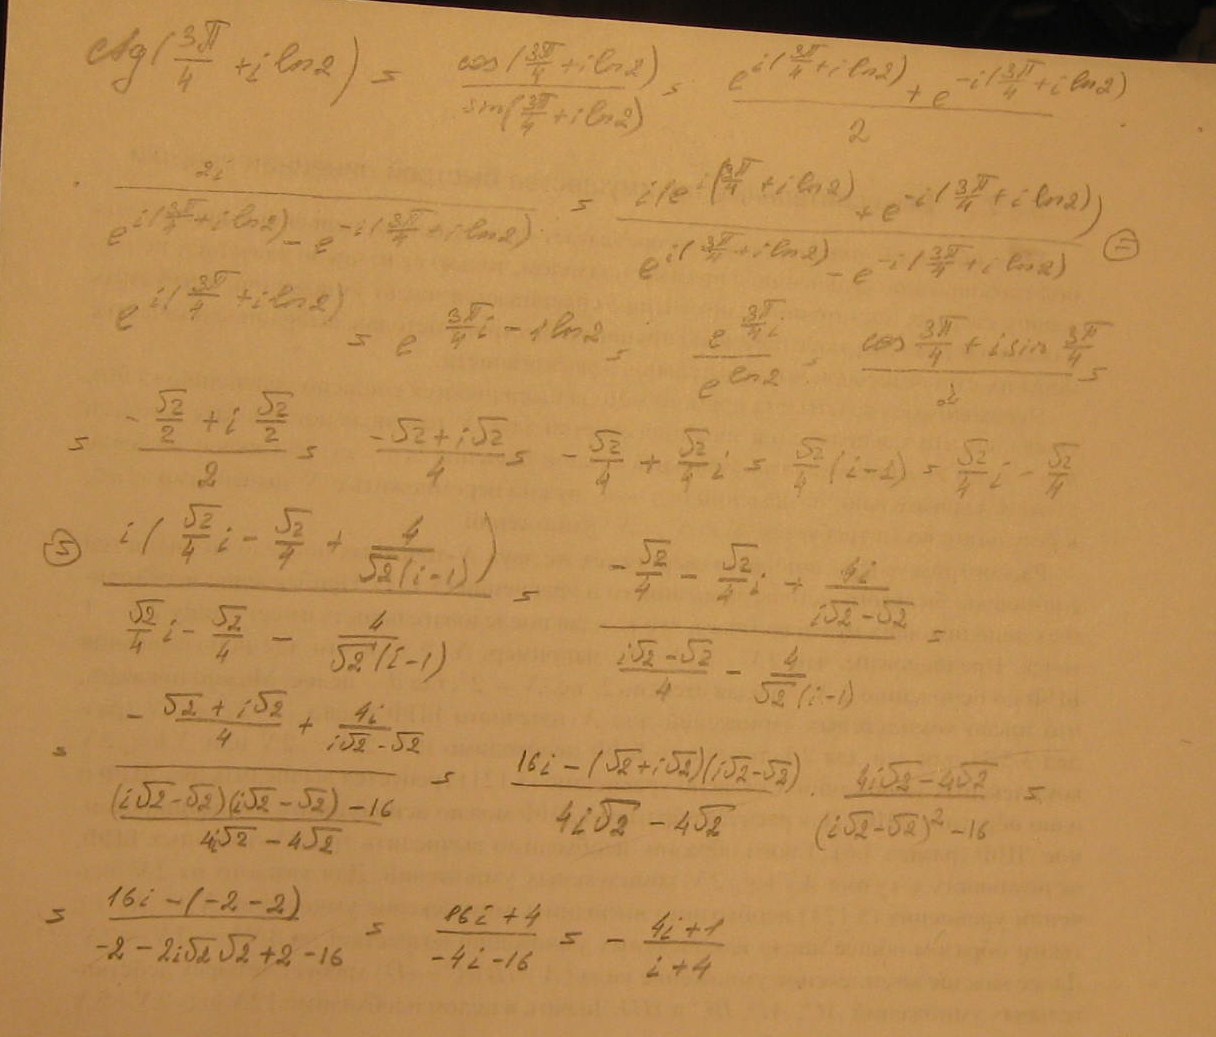 ctg(3π/4 + i ln2) = cos(3π/4 + i ln2)/sin(3π/4 + i ln2) = (e^{i(3π/4 + i ln2)} + e^{-i(3π/4 + i ln2)})/2 ·
· 2i/(e^{i(3π/4 + i ln2)} - e^{-i(3π/4 + i ln2)}) = i(e^{i(3π/4 + i ln2)} + e^{-i(3π/4 + i ln2)})/(e^{i(3π/4 + i ln2)} - e^{-i(3π/4 + i ln2)}) ⊜
e^{i(3π/4 + i ln2)} = e^{3π/4 i - 1 ln2} = e^{3π/4 i}/e^{ln2} = (cos 3π/4 + i sin 3π/4)/2 =
= (-√2/2 + i √2/2)/2 = (-√2 + i√2)/4 = -√2/4 + √2/4 i = √2/4 (i-1) = √2/4 i - √2/4
⊜ i(√2/4 i - √2/4 + 4/(√2(i-1)))/(√2/4 i - √2/4 - 4/(√2(i-1))) = (-√2/4 - √2/4 i + 4i/(i√2-√2))/((i√2-√2)/4 - 4/(√2(i-1))) =
= (-(√2 + i√2)/4 + 4i/(i√2-√2))/(((i√2-√2)(i√2-√2) - 16)/(4i√2 - 4√2)) = (16i - (√2+i√2)(i√2-√2))/(4i√2 - 4√2) · (4i√2 - 4√2)/((i√2-√2)² - 16) =
= (16i - (-2-2))/(-2 - 2i√2√2 + 2 - 16) = (16i + 4)/(-4i - 16) = - (4i+1)/(i+4)